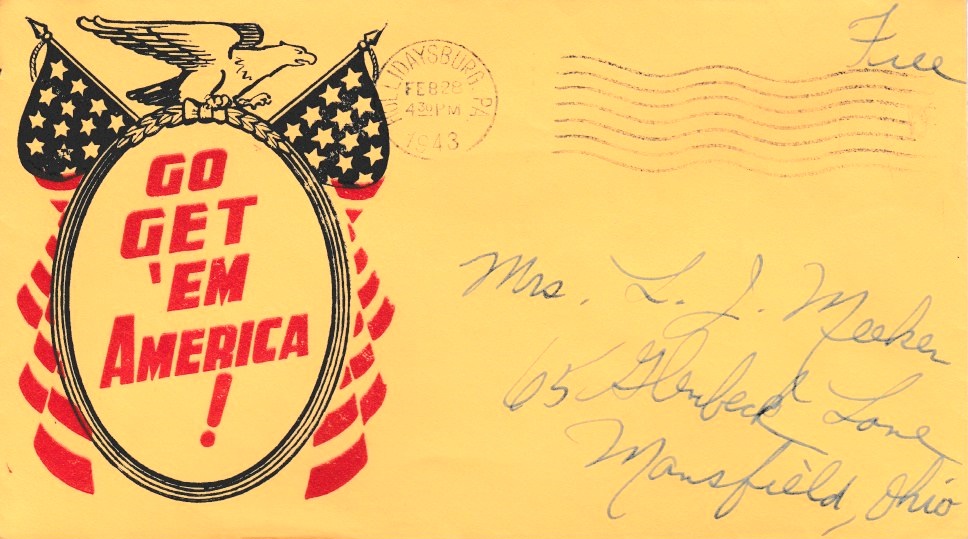 Free
HOLLIDAYSBURG, PA.
FEB 28
4 30 PM
1943
GO
GET
'EM
AMERICA
!
Mrs. L. J. Meeker
65 Glenbeck Lane
Mansfield, Ohio